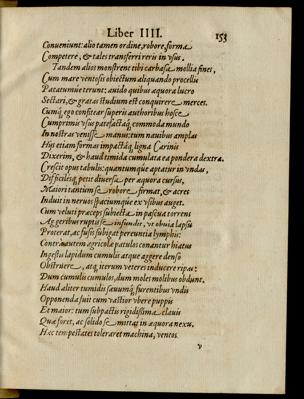 Liber IIII. 153
Conueniunt: alio tamen ordine, robore, forma
Competere, & tales transferri rerū in vsus.
Tandem alios monstrent tibi carbasa mollia fines,
Cum mare ventosis obiectum aliquando procellis
patienter: auido quibus aquora lucro
Sectari, & gratas studium est conquirere merces.
Cumq́; ego consitear superis authoribus hosce
Cumprimis vsus patefactaq́; commoda mundo
In nostras venisse manus: tum nauibus amplas
Hys etiam formas impactáq; ligna Carinis
Dixerim, & haud timida cumulata ea pondera dextra.
Crescit opus tabulis: quantumque aptatur in vndas,
Difficileq́; petit diuersa per aquora cursus,
Maiori tantum se robore firmat, & acres
Induit in neruos spaciumque ex vsibus auget.
Cum veluti præceps subiecta in pascua torrens
Aggeribus ruptis se infundit, vt obuia lapsu
Proterat, ac fusis subigat percuncta lymphis:
Contra autem agricolæ patulos conantur hiatus
Ingestis lapidum cumulis atque aggere denso
Obstruere, atq́; iterum veteres inducere ripas:
Dum cumulis cumulos, dum moles molibus obdunt.
Haud aliter tumidis sæuumq́; furentibus vndis
Opponenda fuit cum vastior vbere puppis
Et maior: tum subpactis rigidissima clauis
Quæ foret, ac solido se mittat in æquora nexu.
Hac tempestates toleraret machina, ventos
v